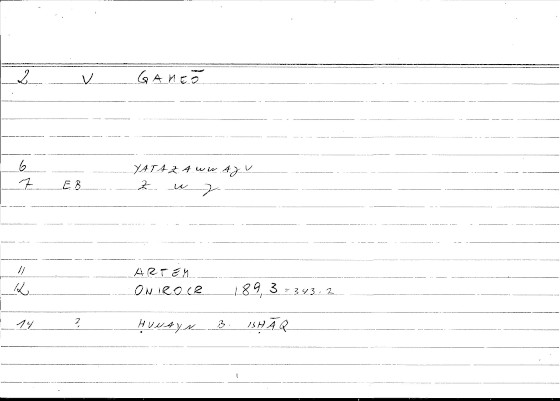 2 V GAMEŌ
6 YATAZAWWAJU
7 EB Z W J
11 ARTEM
12 ONIROCR 189,3 = 343.2
14 ? ḤUNAYN B. ISḤĀQ